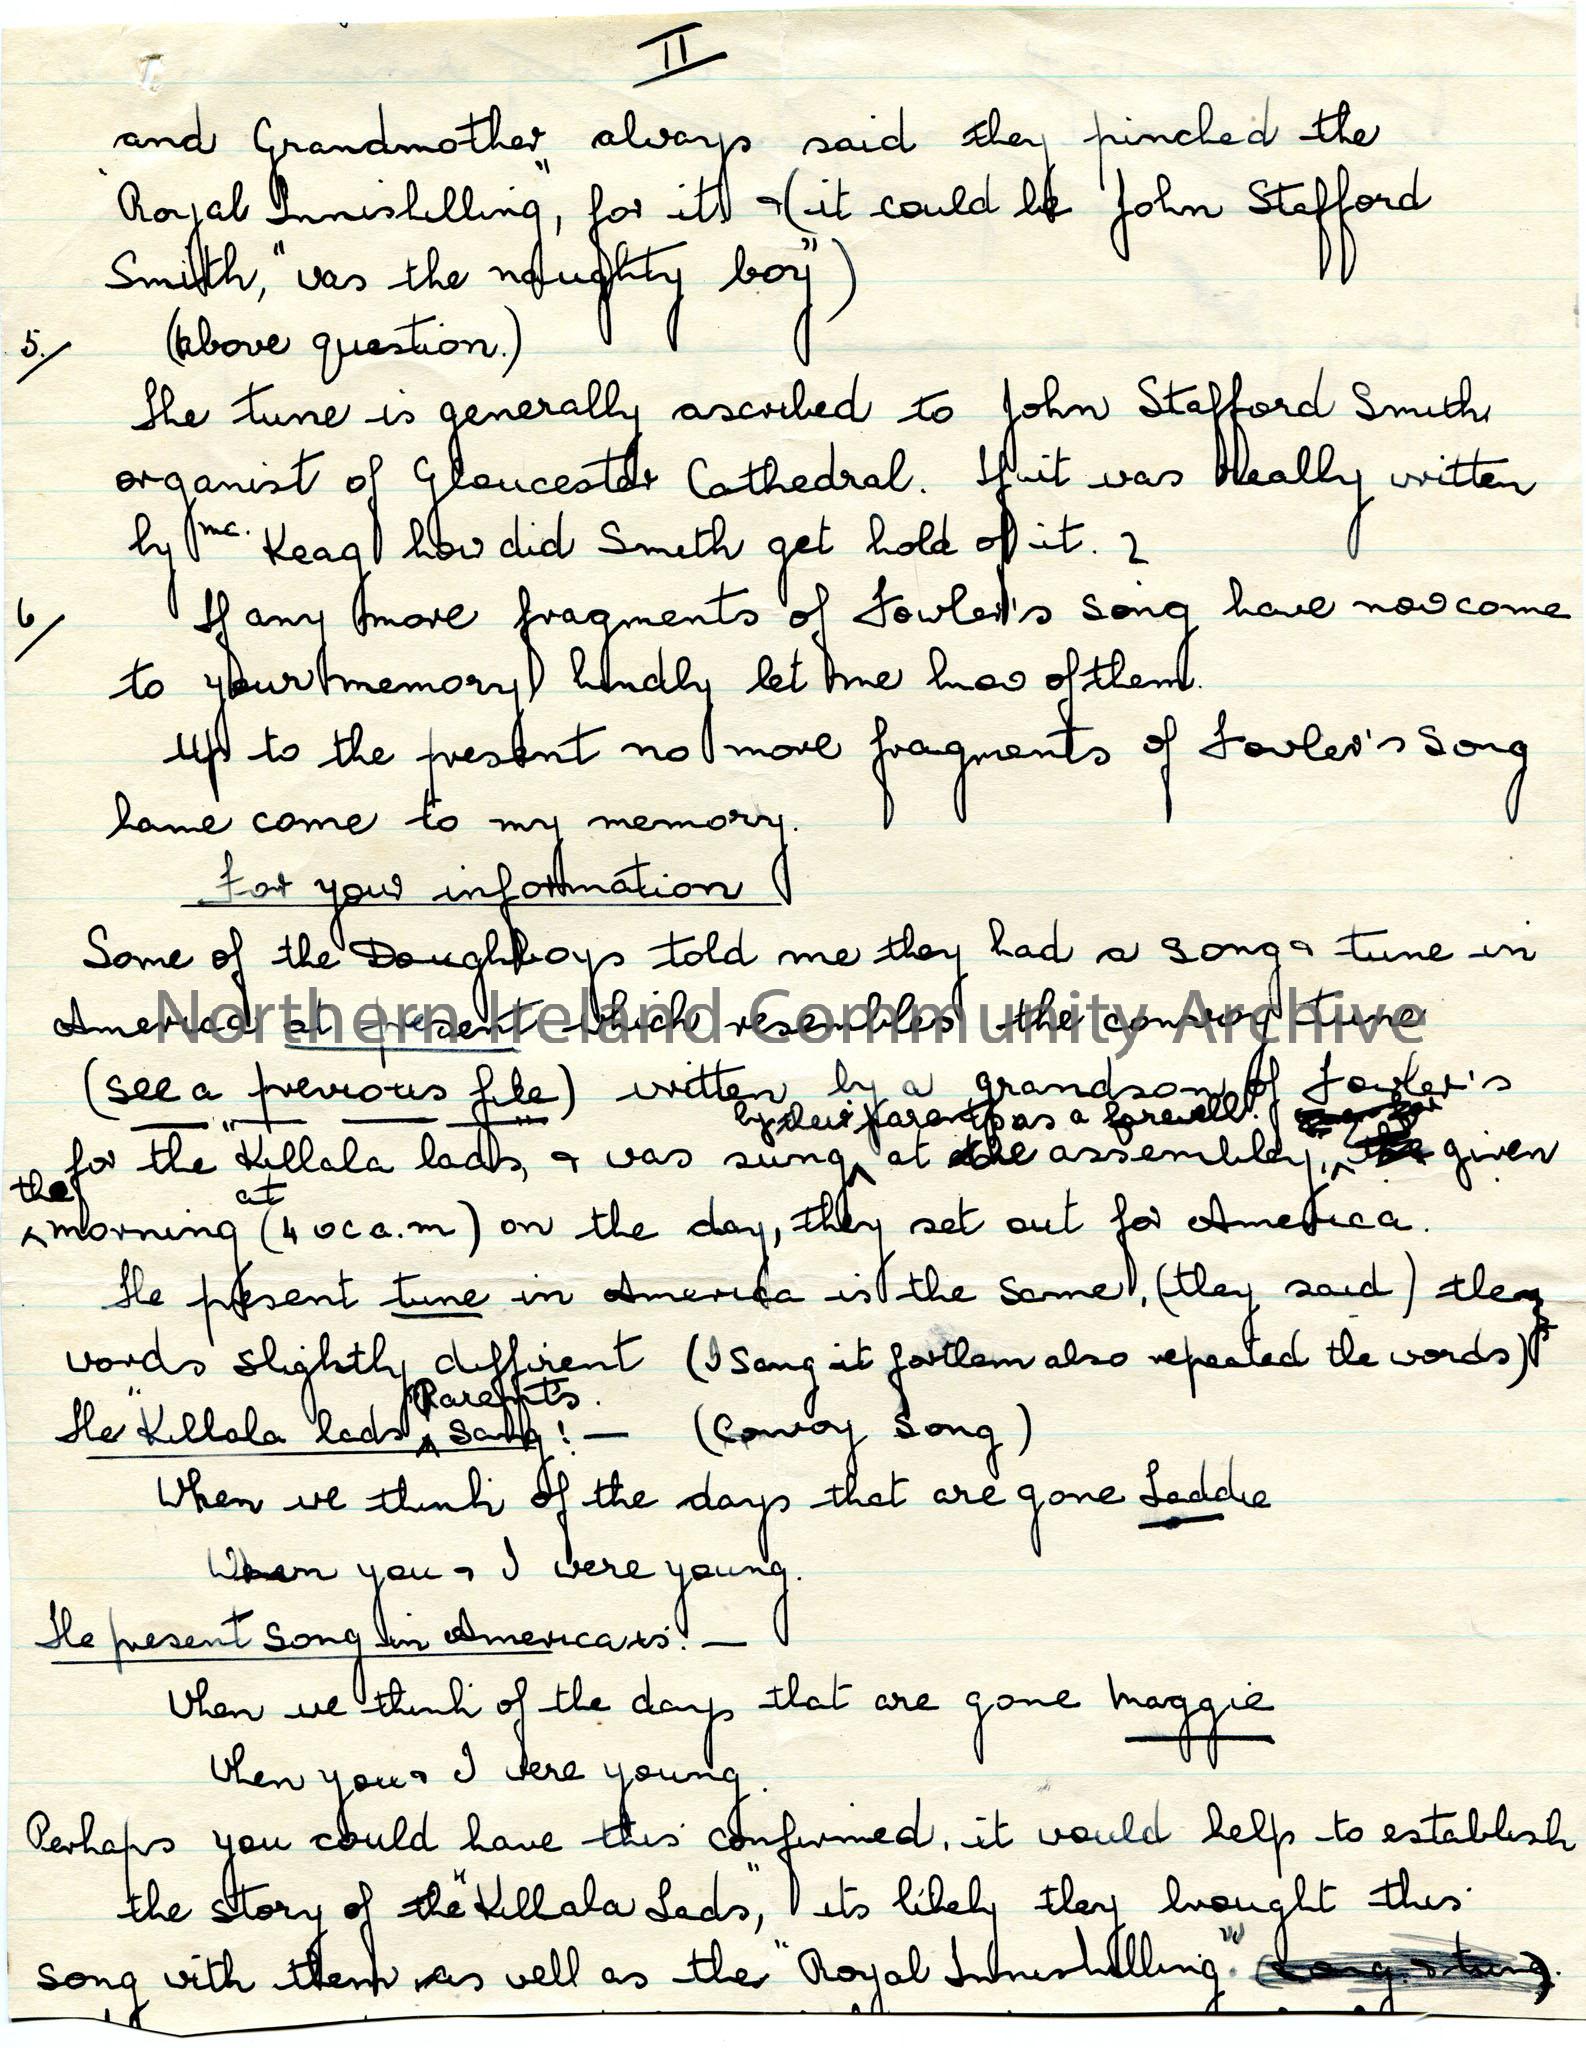 II
and Grandmother always said they pinched the
"Royal Inniskilling", for it & (it could be John Stafford
Smith, "was the naughty boy")
5./ (above question.)
The tune is generally ascribed to John Stafford Smith
organist of Gloucester Cathedral. If it was really written
by Mc. Keag how did Smith get hold of it. ?
6/ If any more fragments of Fowler's song have now come
to your memory kindly let me know of them.
Up to the present no more fragments of Fowler's Song
have come to my memory.
For your information
Some of the Doughboys told me they had a song & tune in
America at present which resembles the convoy tune
(see a previous file) written by a grandson of Fowler's
by their parents as a farewell
for the "Killala lads, & was sung at the assembley, given
the at
morning (4 oc a.m) on the day, they set out for America.
The present tune in America is the same, (they said) the
words slightly diffirent (I sang it for them also repeated the words)
Parents.
The "Killala lads Song! — (Convoy Song)
When we think of the days that are gone Laddie
When you & I were young.
The present song in America is: —
When we think of the days that are gone Maggie
When you & I were young.
Perhaps you could have this confirmed, it would help to establish
the story of the "Killala Lads," its likely they brought this
song with them as well as the "Royal Inniskilling"
Northern Ireland Community Archive